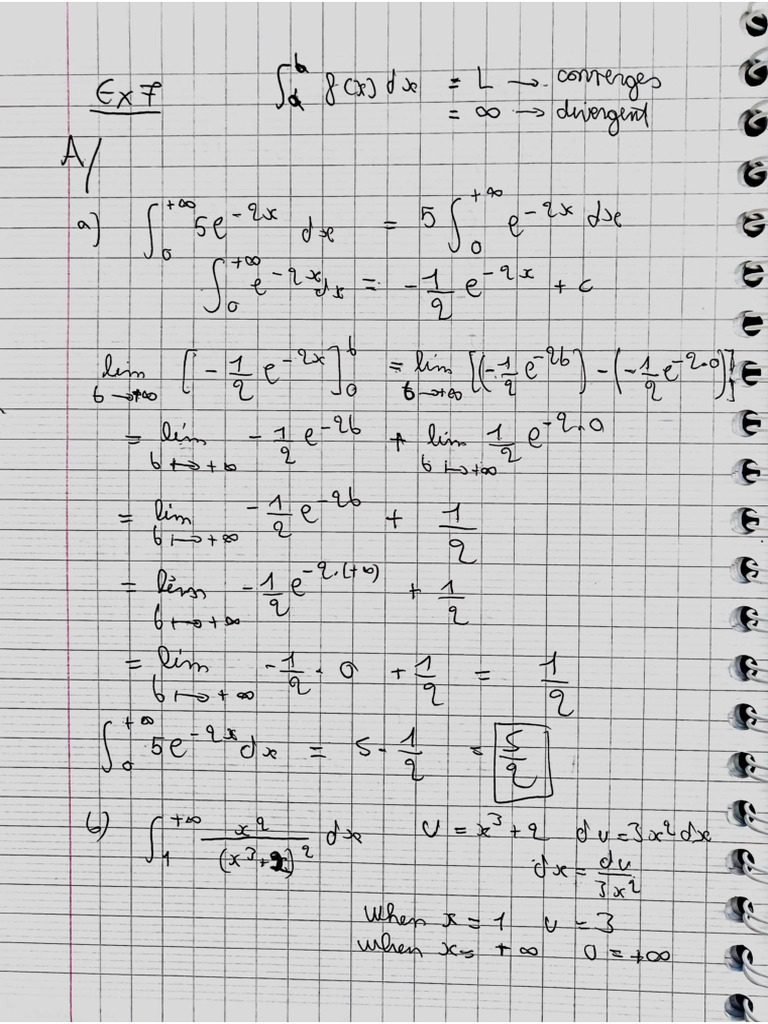 Ex 7
∫_a^b f(x) dx = L → converges
= ∞ → divergent
A/
a) ∫_0^{+∞} 5e^{-2x} dx = 5 ∫_0^{+∞} e^{-2x} dx
∫_0^{+∞} e^{-2x} dx = -1/2 e^{-2x} + c
lim_{b→+∞} [-1/2 e^{-2x}]_0^b = lim_{b→+∞} [(-1/2 e^{-2b}) - (-1/2 e^{-2·0})]
= lim_{b↦+∞} -1/2 e^{-2b} + lim_{b↦+∞} 1/2 e^{-2·0}
= lim_{b↦+∞} -1/2 e^{-2b} + 1/2
= lim_{b↦+∞} -1/2 e^{-2·(+∞)} + 1/2
= lim_{b↦+∞} -1/2 · 0 + 1/2 = 1/2
∫_0^{+∞} 5e^{-2x} dx = 5 · 1/2 = 5/2
b) ∫_1^{+∞} x^2/(x^3+2)^2 dx U = x^3+2 du = 3x^2 dx
dx = du/3x^2
when x = 1 u = 3
when x = +∞ U = +∞